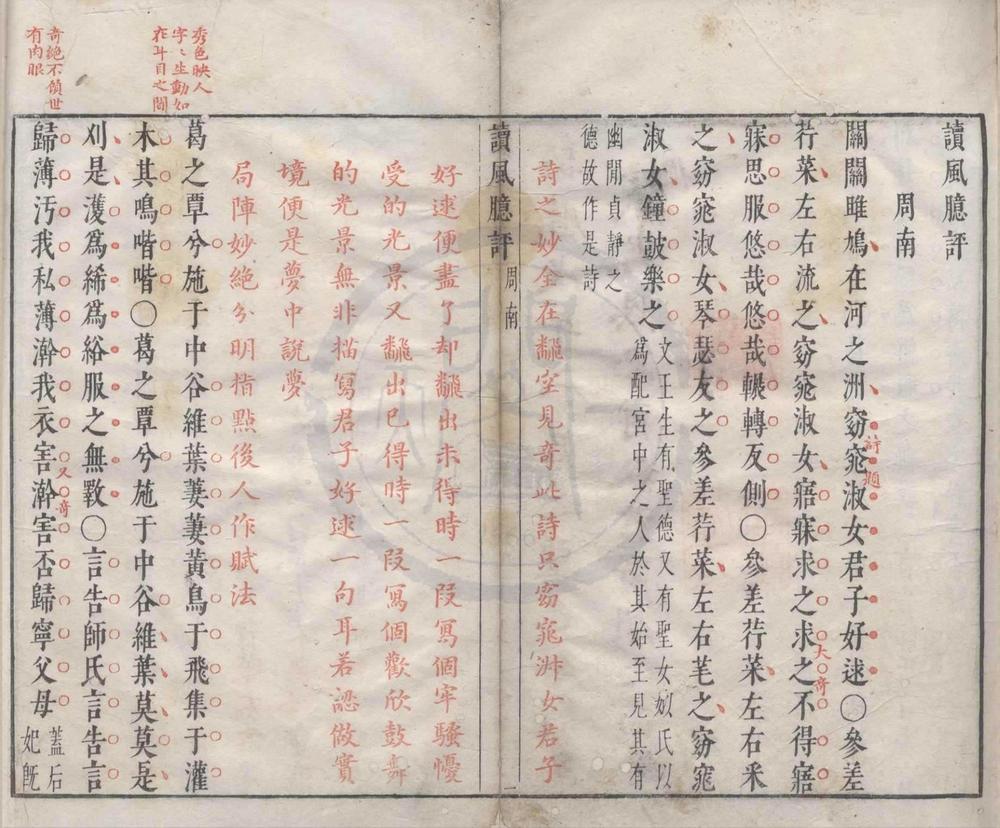 讀風臆評
周南
關關雎鳩在河之洲窈窕淑女君子好逑〇參差
詩題
荇菜左右流之窈窕淑女寤寐求之求之不得寤
大奇
寐思服悠哉悠哉輾轉反側〇參差荇菜左右采
之窈窕淑女琴瑟友之參差荇菜左右芼之窈窕
淑女鐘鼓樂之
文王生有聖德又有聖女姒氏以
爲配宮中之人於其始至見其有
幽閒貞靜之
德故作是詩
詩之妙全在翻空見奇此詩只窈窕淑女君子
讀風臆評
周南
一
好逑便盡了却翻出未得時一段寫個牢騷憂
受的光景又翻出已得時一段寫個歡欣鼓舞
的光景無非描寫君子好逑一句耳若認做實
境便是夢中說夢
局陣妙絕分明指點後人作賦法
秀色映人
字〻生動如
在斗目之間
葛之覃兮施于中谷維葉萋萋黃鳥于飛集于灌
木其鳴喈喈〇葛之覃兮施于中谷維葉莫莫是
刈是濩爲絺爲綌服之無斁〇言告師氏言告言
奇絕不顧世
有肉眼
歸薄汚我私薄澣我衣害澣害否歸寧父母
又奇
蓋后
妃旣